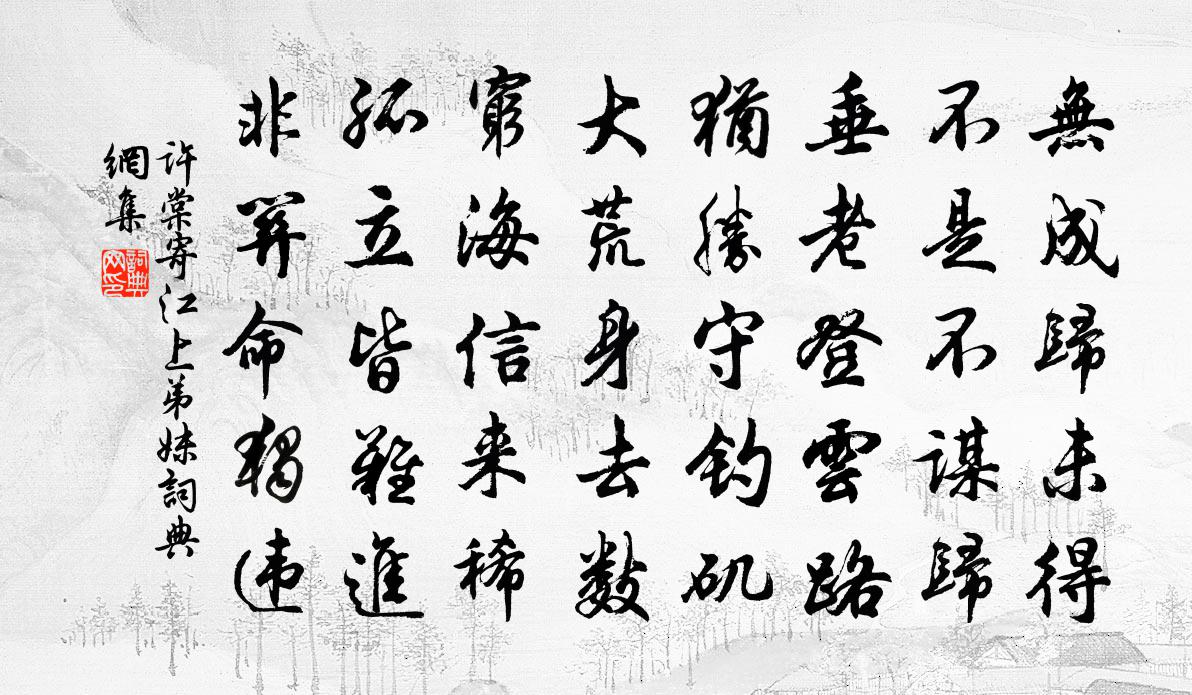 無成歸未得
不是不謀歸
垂老登雲路
猶勝守釣磯
大荒身去數
窮海信来稀
孤立皆難進
非關命獨违
许棠寄江上弟妹詞典
網集
詞典
网印